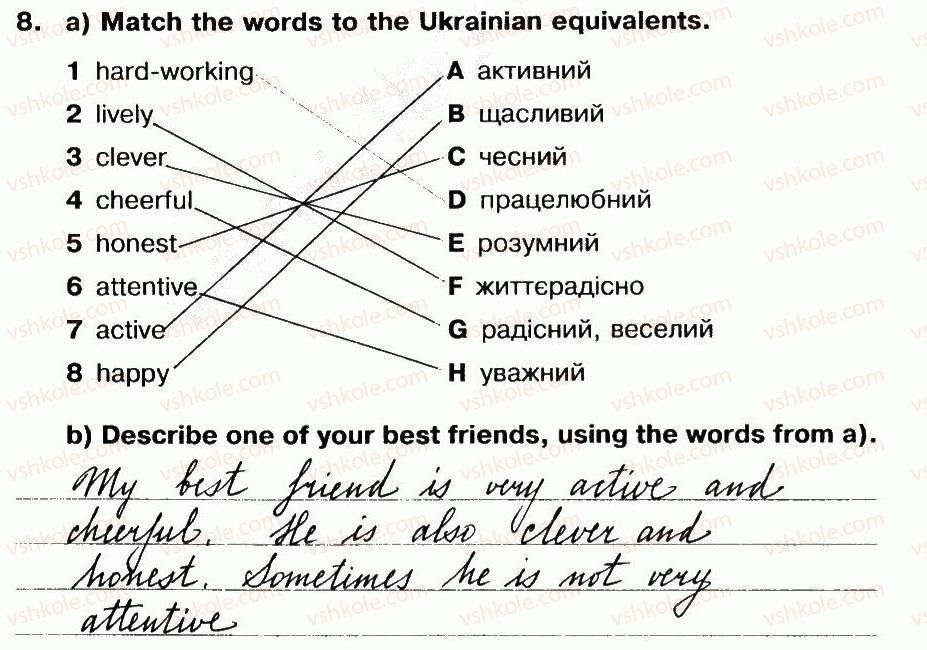 8. a) Match the words to the Ukrainian equivalents.
1 hard-working A активний
2 lively B щасливий
3 clever C чесний
4 cheerful D працелюбний
5 honest E розумний
6 attentive F життєрадісно
7 active G радісний, веселий
8 happy H уважний
b) Describe one of your best friends, using the words from a).
My best friend is very active and
cheerful. He is also clever and
honest. Sometimes he is not very
attentive
vshkole.com